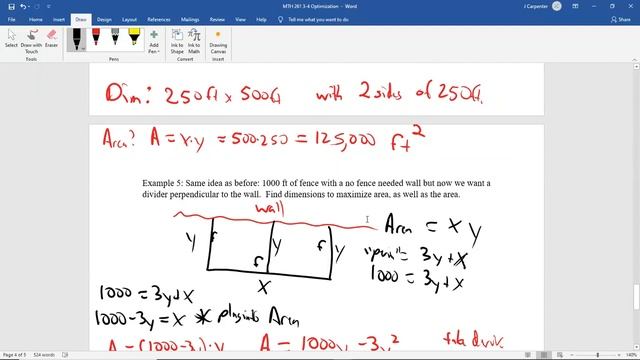 MTH 261 3-4 Optimization - Word
J Carpenter
File Home Insert Draw Design Layout References Mailings Review View Help Tell me what you want to do
Select Draw with Touch Eraser Add Pen Ink to Shape Ink to Math Drawing Canvas
Tools Pens Convert Insert
Dim: 250ft x 500ft with 2 sides of 250ft.
Area? A = x·y = 500·250 = 125,000 ft²
Example 5: Same idea as before: 1000 ft of fence with a no fence needed wall but now we want a
divider perpendicular to the wall. Find dimensions to maximize area, as well as the area.
wall
Area = x y
y f y f y
3y+x
f
1000 = 3y+x
x
1000 = 3y+x
1000-3y = x * plug into Area
A = (1000-3y)·y A = 1000y - 3y²
Page 4 of 5 524 words
140%